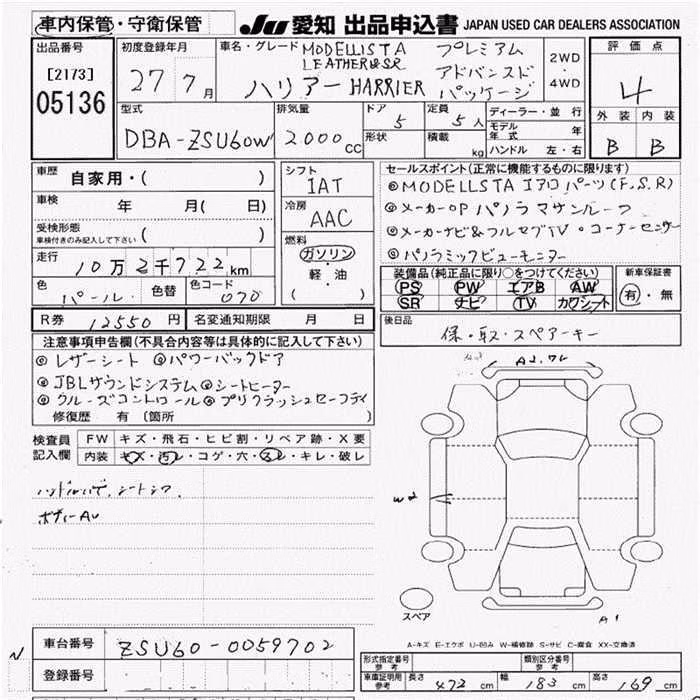 車内保管・守衛保管
JU 愛知 出品申込書 JAPAN USED CAR DEALERS ASSOCIATION
出品番号
[2173]
05136
初度登録年月
27 7月
車名・グレード MODELLISTA プレミアム
LEATHER&SR アドバンスド
ハリアー HARRIER パッケージ
2WD
・
4WD
評価点
4
外装 内装
B B
型式
DBA-ZSU60W
排気量
2000cc
ドア
5
形状
定員
5人
積載
kg
ディーラー・並行
モデル年式 年
ハンドル 左・右
車歴
自家用・( )
車検
年 月( 日)
受検形態
車検付きのみ記入して下さい ( )
走行
10万2千722km
色
パール・
色替
色コード
070
シフト
IAT
冷房
AAC
燃料
ガソリン
・
軽・油
( )
セールスポイント(正常に機能するものに限ります)
◎MODELLSTAエアロパーツ(F,S,R)
◎メーカーOPパノラマサンルーフ
◎メーカーナビ&フルセグTV・コーナーセンサー
◎パノラミックビューモニター
装備品(純正品に限り○をつけてください)
PS PW エアB AW
SR ナビ TV カワシート
新車保証書
有・無
R券 12550円
名変通知期限 月 日
後日品
保・取・スペアーキー
注意事項申告欄(不具合内容等は具体的に記入して下さい)
◎レザーシート ◎パワーバックドア
◎JBLサウンドシステム ◎シートヒーター
◎クルーズコントロール ◎プリクラッシュセーフティ
修復歴 有 〔箇所 〕
検査員
記入欄
FW キズ・飛石・ヒビ割・リペア跡・X要
内装 キズ・汚レ・コゲ・穴・スレ・キレ・破レ
W2
A1
スペア
A-キズ E-エクボ U-凹み W-補修跡 S-サビ C-腐食 XX-交換済
車台番号 ZSU60-0059702
登録番号
形式指定番号
参考
類別区分番号
参考
車庫証明用
参考
長さ 472cm 幅 183cm 高さ 169cm